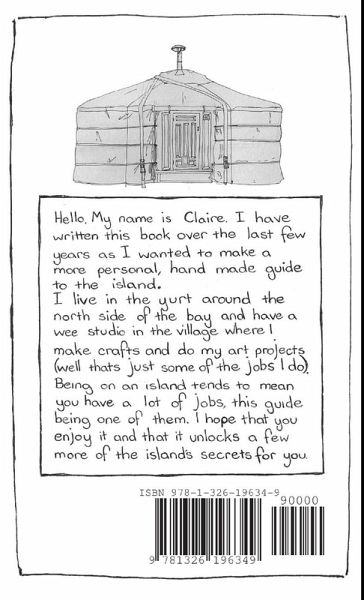 Hello. My name is Claire. I have
written this book over the last few
years as I wanted to make a
more personal, hand made guide
to the island.
I live in the yurt around the
north side of the bay and have a
wee studio in the village where I
make crafts and do my art projects
(well thats just some of the jobs I do).
Being on an island tends to mean
you have a lot of jobs, this guide
being one of them. I hope that you
enjoy it and that it unlocks a few
more of the island's secrets for you.
ISBN 978-1-326-19634-9
90000
9 781326 196349